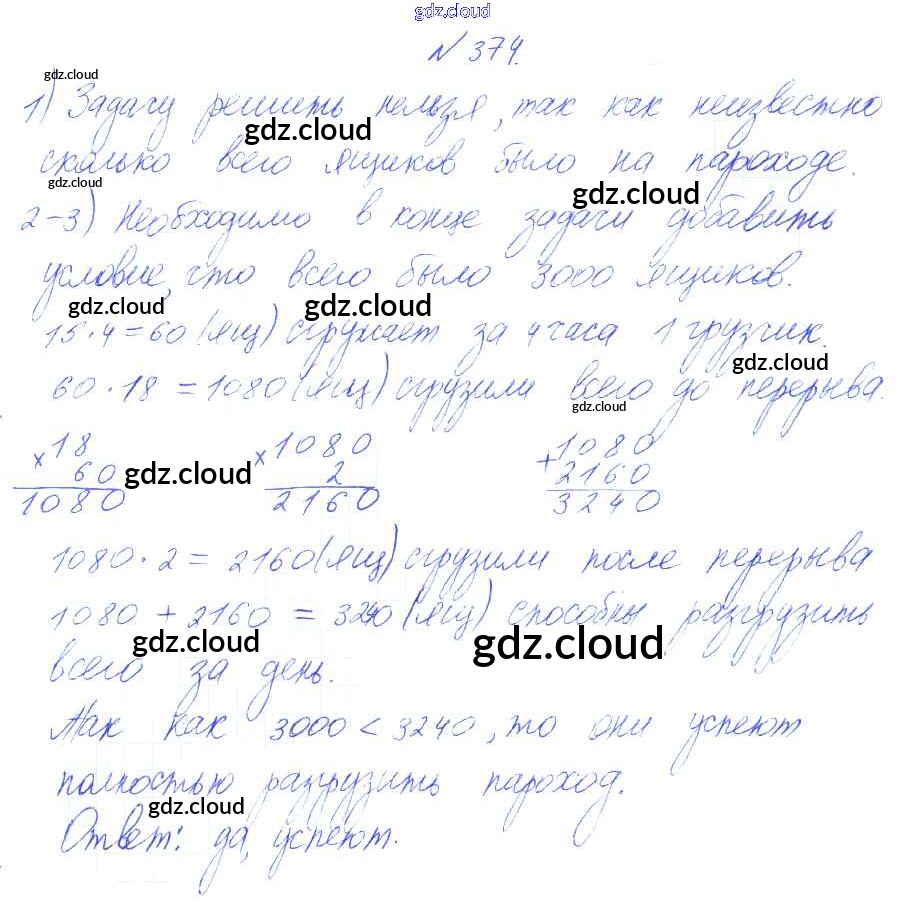 gdz.cloud
N 374.
gdz.cloud
1) Задачу решить нельзя, так как неизвестно
gdz.cloud
сколько всего ящиков было на пароходе.
gdz.cloud gdz.cloud
2-3) Необходимо в конце задачи добавить
условие, что всего было 3000 ящиков.
gdz.cloud gdz.cloud
15·4=60 (ящ) сгружает за 4 часа 1 грузчик.
gdz.cloud
60·18=1080 (ящ) сгрузили всего до перерыва.
gdz.cloud
18 1080 1080
× 60 gdz.cloud × 2 + 2160
1080 2160 3240
1080·2=2160 (ящ) сгрузили после перерыва
1080+2160=3240 (ящ) способны разгрузить
gdz.cloud gdz.cloud
всего за день.
Так как 3000<3240, то они успеют
полностью разгрузить пароход.
gdz.cloud
Ответ: да, успеют.